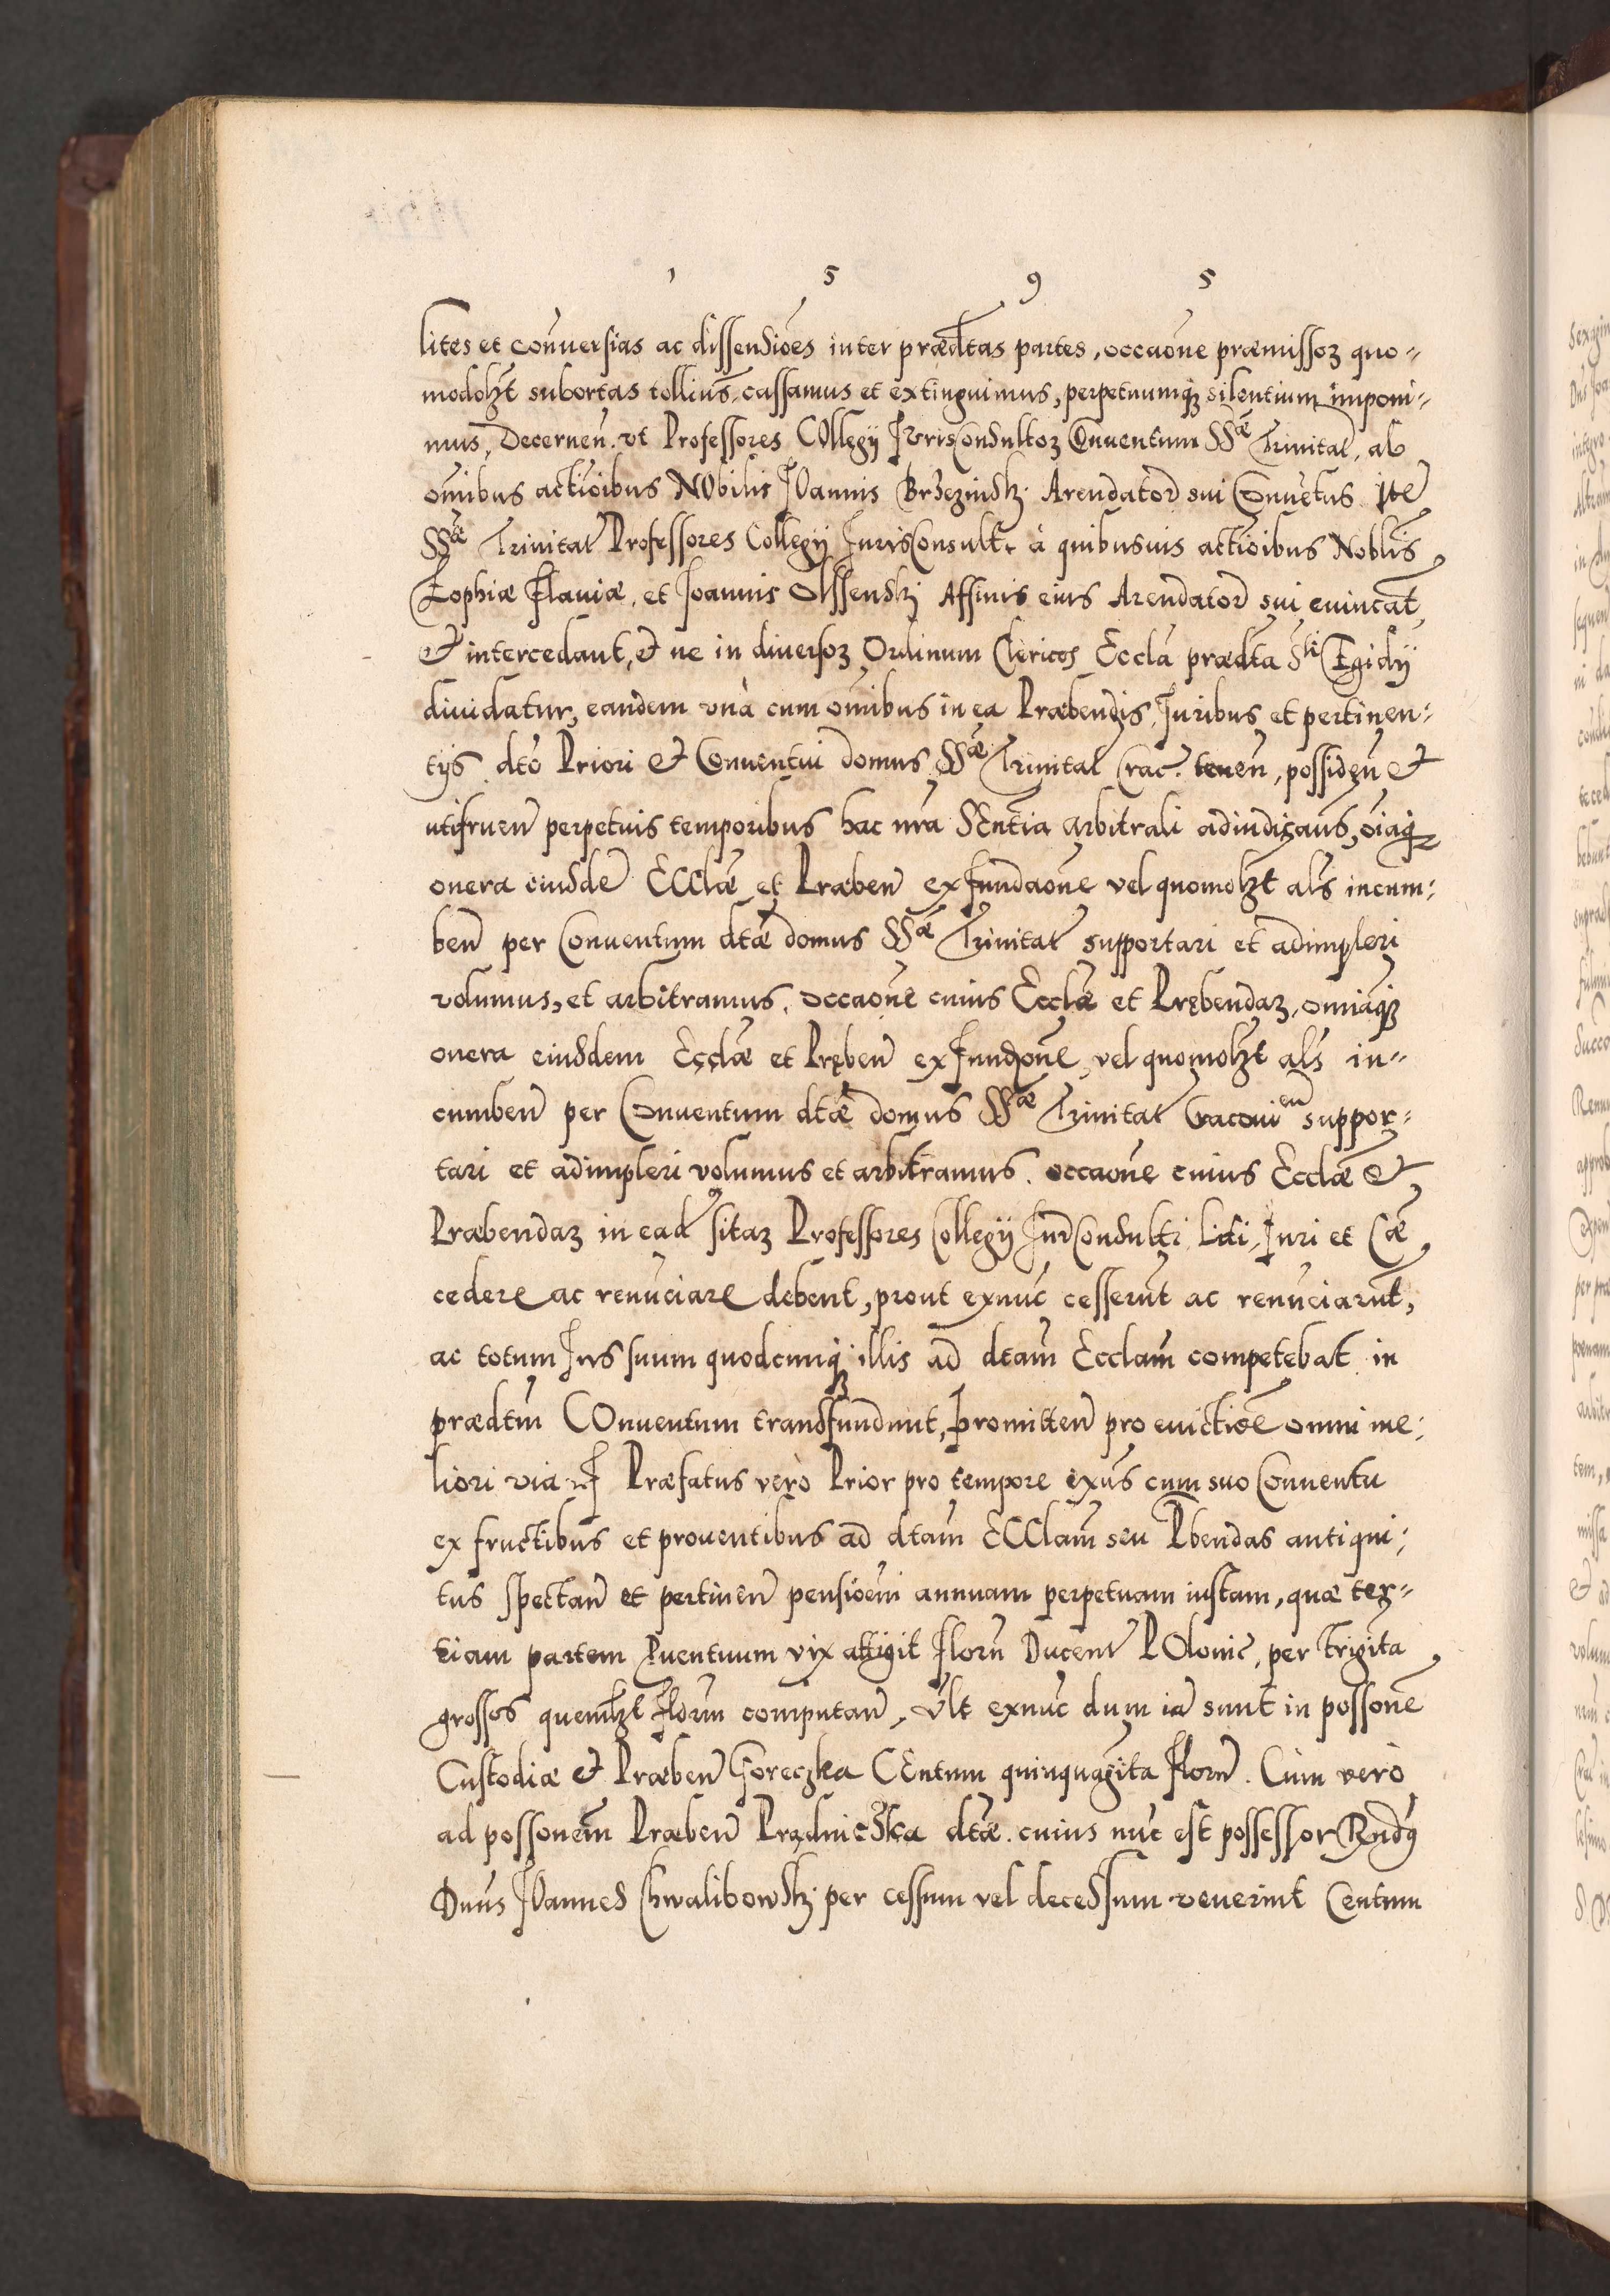 1 5 9 5
lites et conuersias ac dissensiões inter prædtas partes, occaone præmissoꝝ quo-
modolꝫt subortas tollim̃s, cassamus et extinguimus, perpetuumqꝫ silentium imponi-
mus, Decerneñ. vt Professores COllegij IVrisConsultoꝝ COnuentum SSæ Trinitat̃, ab
omībus actioībus NObilis IOannis Brzezinskj Arendator̃ sui Conuētus. Itē
SSæ Trinitat̃ Professores Collegij IurisConsult̃, à quibusuis actioībus Nobl̃is
Zophiæ Flauiæ, et Joannis Olssenskj Affinis eius Arendator̃ sui euincãt,
& intercedant, & ne in diuersoꝝ Ordinum Clericos Eccl̃a prædta Sti Egidij
diuidatur, eandem vnà cum omībus in ea Præbendis, Iuribus et pertinen-
tijs dto Priori & Conuentui domus SSæ Trinitat̃ Crac. teneñ, possideñ &
utifrueñ perpetuis temporibus hac nr̃a SEntẽtia Arbitrali adiudicam̃s, oiaqꝫ
onera eiusdẽ ECClæ et Præbeñ ex fundaone vel quomolꝫt al̃s incum-
beñ per Conuentum dtæ domus SSæ Trinitat̃ supportari et adimpleri
volumus, et arbitramus. occaone cuius Ecclæ et Prębendaꝝ, omīaqꝫ
onera eiusdem Ecclæ et Prębeñ ex Fundone, vel quomolꝫt al̃s in-
cumbeñ per Conuentum dtæ domus SSæ Trinitat̃ Cracouieñ suppor-
tari et adimpleri volumus et arbitramus. occaone cuius Ecclæ &
Præbendaꝝ in eadẽ sitaꝝ Professores Collegij Iur̃Consulti Liti, Iuri et Cæ
cedere ac renũciare debent, prout exnũc cesserũt ac renũciarũt,
ac totum Ius suum quodcunqꝫ illis ad dtam Ecclam competebat in
prædtm COnuentum transfundunt, promitteñ pro euictiõe omni me-
liori via Præfatus verò Prior pro tempore exñs cum suo Conuentu
ex fructibus et prouentibus ad dtam ECClam seu Pbendas antiqui-
tus spectañ et pertineñ pensioem annuam perpetuam iustam, quæ ter-
tiam partem Puentuum vix attigit Floreñ Ducent̃ POlonic̃, per trigĩta
grossos quemlꝫt Floreñ computañ, Vlt exnũc dum iã sunt in possone
Custodiæ & Præbeñ Goreczka CEntum quinquagĩta Floreñ. Cùm verò
ad possonem Præbeñ Prądnicska dtæ. cuius nũc est possessor Rndꝰ
Dnũs IOannes Chwalibowskj per cessum vel decessum venerint Centum